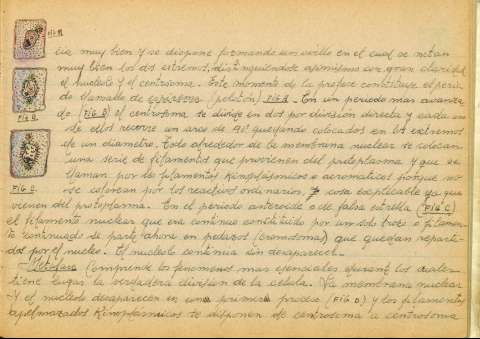 FIG A
cia muy bien y se dispone formando un ovillo en el cual se notan
muy bien los dos extremos, distinguiéndose asimismo con gran claridad
el nucleolo y el centrosoma. Este momento de la profase constituye el perio
do llamado de espirema (pelotón) FIG A. En un periodo mas avanza
FIG B.
do (FIG B) el centrosoma se divide en dos por división directa y cada uno
de ellos recorre un arco de 90º quedando colocados en los extremos
de un diametro. Todo alrededor de la membrana nuclear se colocan
una serie de filamentos que provienen del protoplasma y que se
llaman por lo filamentos Kinoplásmicos o acromaticos porque no
FIG C.
se colorean por los reactivos ordinarios, cosa explicable ya que
vienen del protoplasma. En el periodo asteroide o de falsa estrella (FIG C)
el filamento nuclear que era continuo constituido por un solo trozo o filamen
to continuado se parte ahora en pedazos (cromosomas) que quedan reparti
dos por el nucleo. El nucleolo continua sin desaparecer.
Metafase Comprende los fenomenos mas esenciales durante los cuales
tiene lugar la verdadera division de la celula. La membrana nuclear
y el nucleolo desaparecen en un primer proceso (FIG D) y los filamentos
apelmazados Kinoplásmicos se disponen de centrosoma a centrosoma